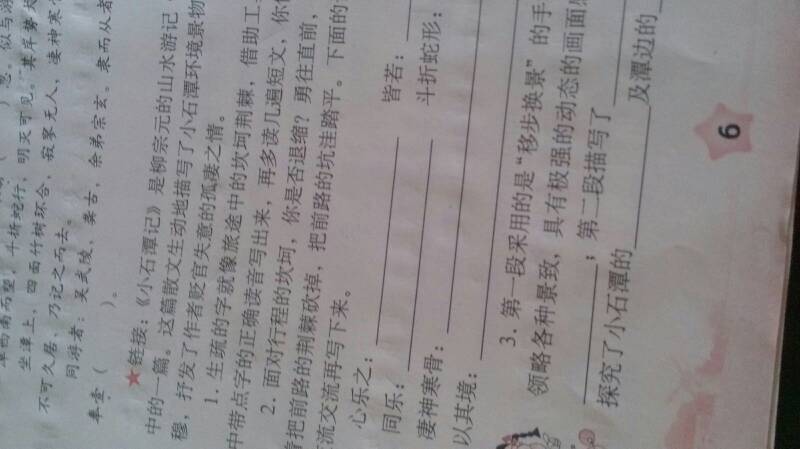 潭西南而望,斗折蛇行,明灭可见。其岸势犬
坐潭上,四面竹树环合,寂寥无人,凄神寒
不可久居,乃记之而去。
同游者:吴武陵,龚古,余弟宗玄。隶而从者
奉壹( )。
★链接:《小石潭记》是柳宗元的山水游记
中的一篇。这篇散文生动地描写了小石潭环境景物
穆,抒发了作者贬官失意的孤凄之情。
1. 生疏的字就像旅途中的坎坷荆棘,借助工
中带点字的正确读音写出来,再多读几遍短文,你
2. 面对行程的坎坷,你是否退缩?勇往直前,
把前路的荆棘砍掉,把前路的坑洼踏平。下面的
流交流再写下来。
心乐之: 皆若:
同乐: 斗折蛇形:
凄神寒骨:
以其境:
3. 第一段采用的是“移步换景”的手
领略各种景致,具有极强的动态的画面
;第二段描写了
探究了小石潭的 及潭边的
6